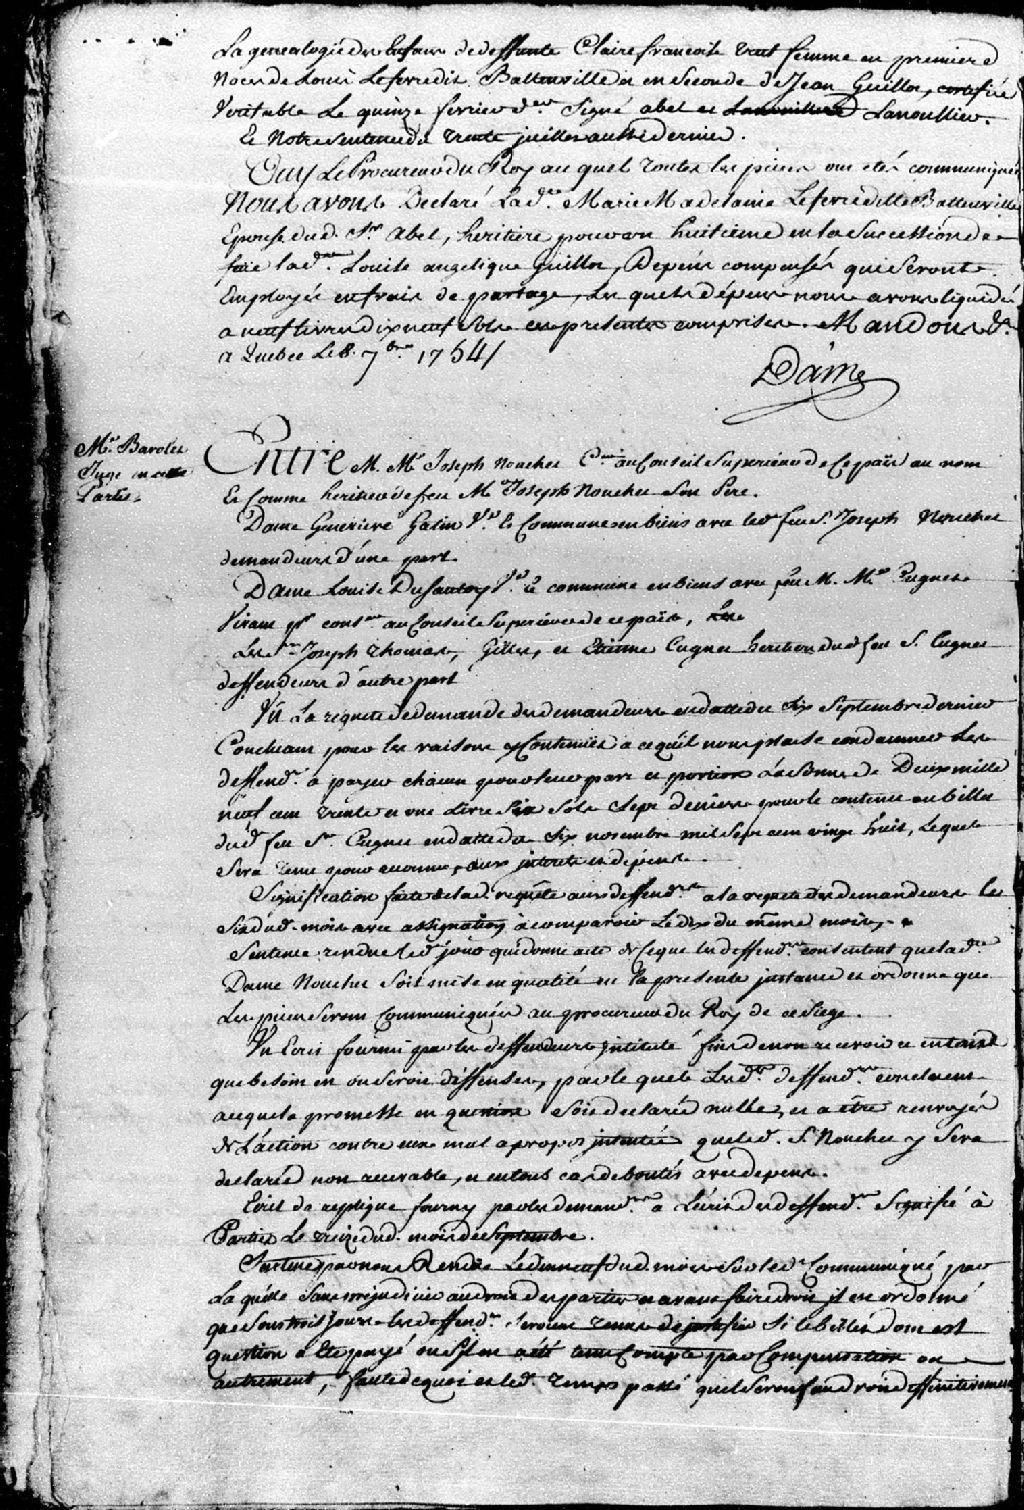 La genealogie des Enfans de deffunte Claire francoise trut femme en premiere
Noces de Louis Lefevre dit Battanville et en Seconde de Jean Guillot, certifiée
Veritable Le quinze fevrier der Signé abel et Lanoullier.
Et Notre Sentence du trente juillet aussi dernier.
Ouy Le Procureur du Roy auquel toutes les pieces ont etés communiqués
Nous avons Declaré Lade. Marie Madelaine Lefevre dite Battanville
Epouse dud. Sr. Abel, heritiere pour un huitieme en la Succession de
feue lade. Louise angelique Guillot, Depens compensés qui Seront
Employés en frais de partage, Les quels dépens nous avons liquidés
a neuf Livres dix neuf Sols ces presentes comprises. Mandons &a.
a Quebec Le 8. 7bre. 1754/
Dáine
Mr. Barolet
Juge en cette
Partie
Entre M. Me. Joseph Nouchet Cer. au Conseil Superieur de Ce païs au nom
Et Comme heritier de feu Me. Joseph Nouchet Son Pere.
Dame Genevieve Gatin Ve. de Commune en biens avec led. feu Sr. Joseph Nouchet
demandeurs d'une part
Dame Louise Dusautoy Ve. de commune en biens avec feu M. Me. Cugnet
Vivant pr. conser. au Conseil Superieur de ce païs,
Les Srs. Joseph Thomas, Gilles, et Etienne Cugnet heritiers dud. feu S. Cugnet
deffendeurs d'autre part
Vu La requete de demande des demandeurs en datte du Six Septembre dernier
Concluant pour les raisons y Contenües a ce qu'il nous plaise condamner Les
deffendrs. a payer chacun pour leur part et portion La Somme de Deux mille
neuf cent trente et une Livre Six Sols Sept deniers pour le contenu au billet
dud. feu Sr. Cugnet en datte du Six novembre mil Sept cent vingt huit, Lequel
Sera tenu pour reconnu, aux interets et dépens.
Signification faite de lad. requête aux deffendrs. a la requete des demandeurs le
Six dud. mois avec assignation à comparoir Le dix du même mois,
Sentence rendue led. jour qui donne acte de Ce que les deffendrs. consentent que lade.
Dame Nouchet Soit mise en qualité en la presente instance et ordonne que
Les pieces Seront Communiquées au procureur du Roy de ce Siege.
Vu Ecrit fourni par les deffendeurs intitulé fins de non recevoir et en tant
que besoin en ou Seroit deffenses, par lequel Lesds. deffendrs. concluent
a ce que la promesse en question Soit declarée nulle, et a être renvoyés
de L'action contre eux mal a propos intentée que led. S. Nouchet y Sera
declaré non recevable, et en tous cas debouté avec depens.
Ecrit de replique fourny par les demandrs. a L'écrit des deffendrs. Signifié à
Parties Le treize dud. mois de Septembre.
Sentence par nous Rendüe Le dixneuf dud. mois Sur led. Communiqué par
La quelle Sans prejudicier au droit des parties et avant faire droit il est ordonné
que Sous trois Jours Les deffendrs. Seront tenus de justifier Si le billet dont est
question a Eté payé ou S'il en a été tenu Compte par Compensation ou
autrement, faute de quoi et led. temps passé qu'il Seroit fait droit deffinitivement